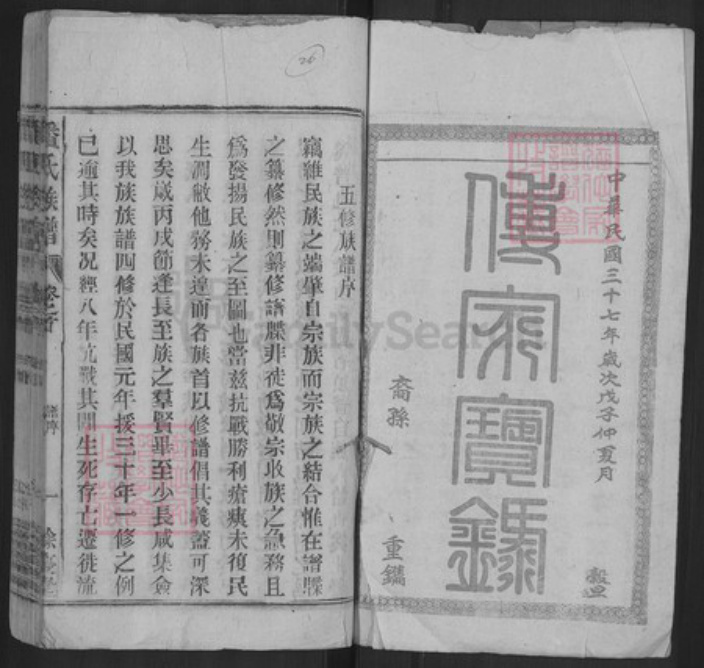 中華民國三十七年歲次戊子仲夏月
穀旦
傳家寶錄
裔孫
重鐫
26
五修族譜序
竊維民族之端肇自宗族而宗族之結合惟在譜牒
之纂修然則纂修譜牒非徒爲敬宗收族之急務且
爲發揚民族之至圖也當茲抗戰勝利瘡痍未復民
生凋敝他務未遑而各族首以修譜倡其義蓋可深
思矣歲丙戌節逢長至族之羣賢畢至少長咸集僉
以我族族譜四修於民國元年援三十年一修之例
已逾其時矣况經八年抗戰其間生死存亡遷徙流
氏族譜
卷首
譜序
一
FamilySearch